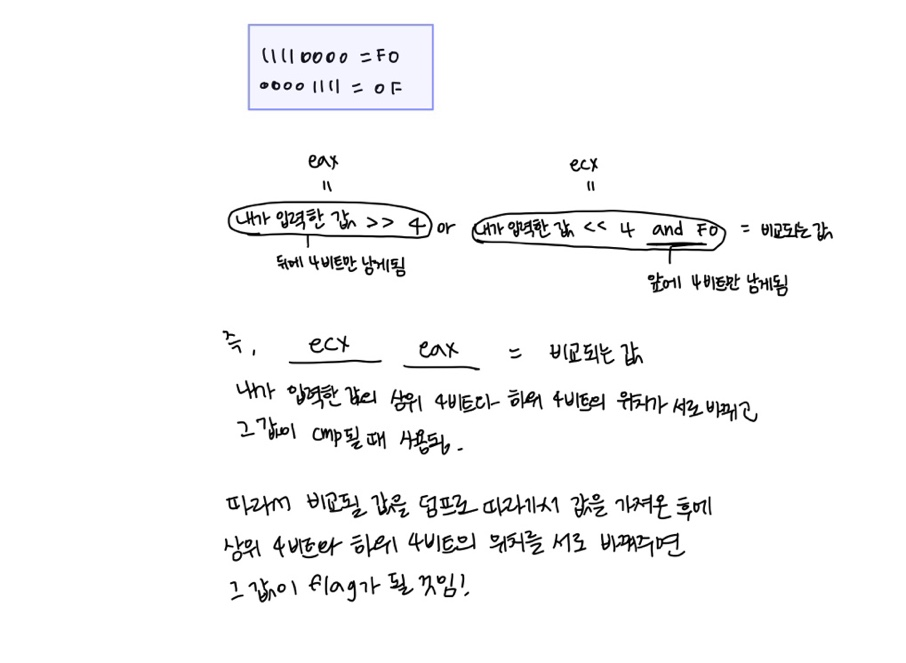 11110000 = F0
00001111 = 0F
eax
ecx
=
=
내가 입력한 값 >> 4 or 내가 입력한 값 << 4 and F0 = 비교되는 값
뒤에 4비트만 남게됨
앞에 4비트만 남게됨
즉, ecx eax = 비교되는 값
내가 입력한 값의 상위 4비트와 하위 4비트의 위치가 서로 바뀌고
그 값이 cmp될 때 사용됨.
따라서 비교될 값을 덤프로 따라가서 값을 가져온 후에
상위 4비트와 하위 4비트의 위치를 서로 바꿔주면
그 값이 flag가 될 것임!